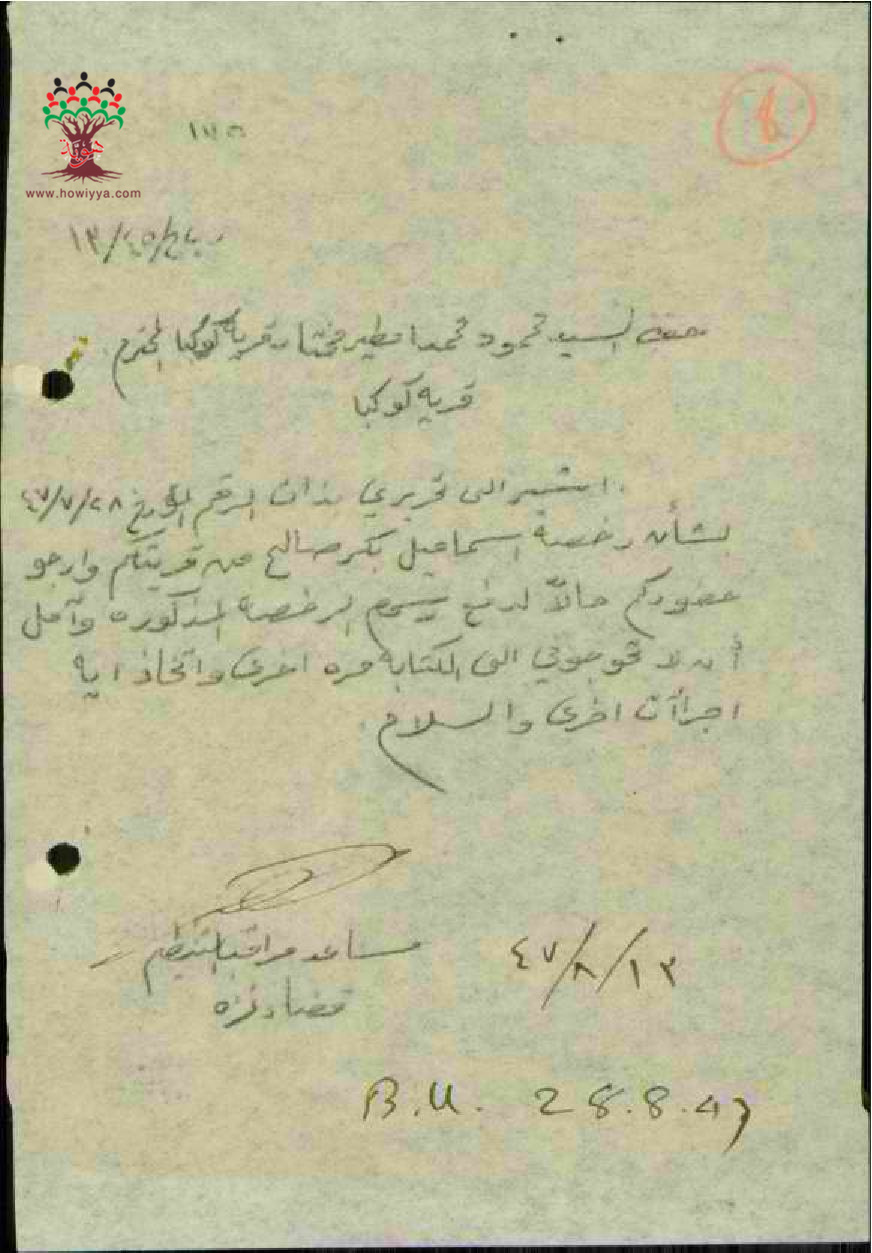 هوية
www.howiyya.com
١٣/٤٥/ع/ب
حضرة السيد محمود محمد امطير مختار قرية كوكبا المحترم
قرية كوكبا
اشير الى تحريري بذات الرقم المؤرخ ٤٧/٧/٢٨
بشأن رخصة اسماعيل بكر صالح من قريتكم وارجو
حضوركم حالاً لدفع رسوم الرخصة المذكوره وآمل
أن لا تحوجوني الى الكتابة مره اخرى واتخاذ اية
اجراآت اخرى والسلام.
مساعد مراقب التنظيم
قضاء غزه
٤٧/٨/١٣
B.U. 28.8.47